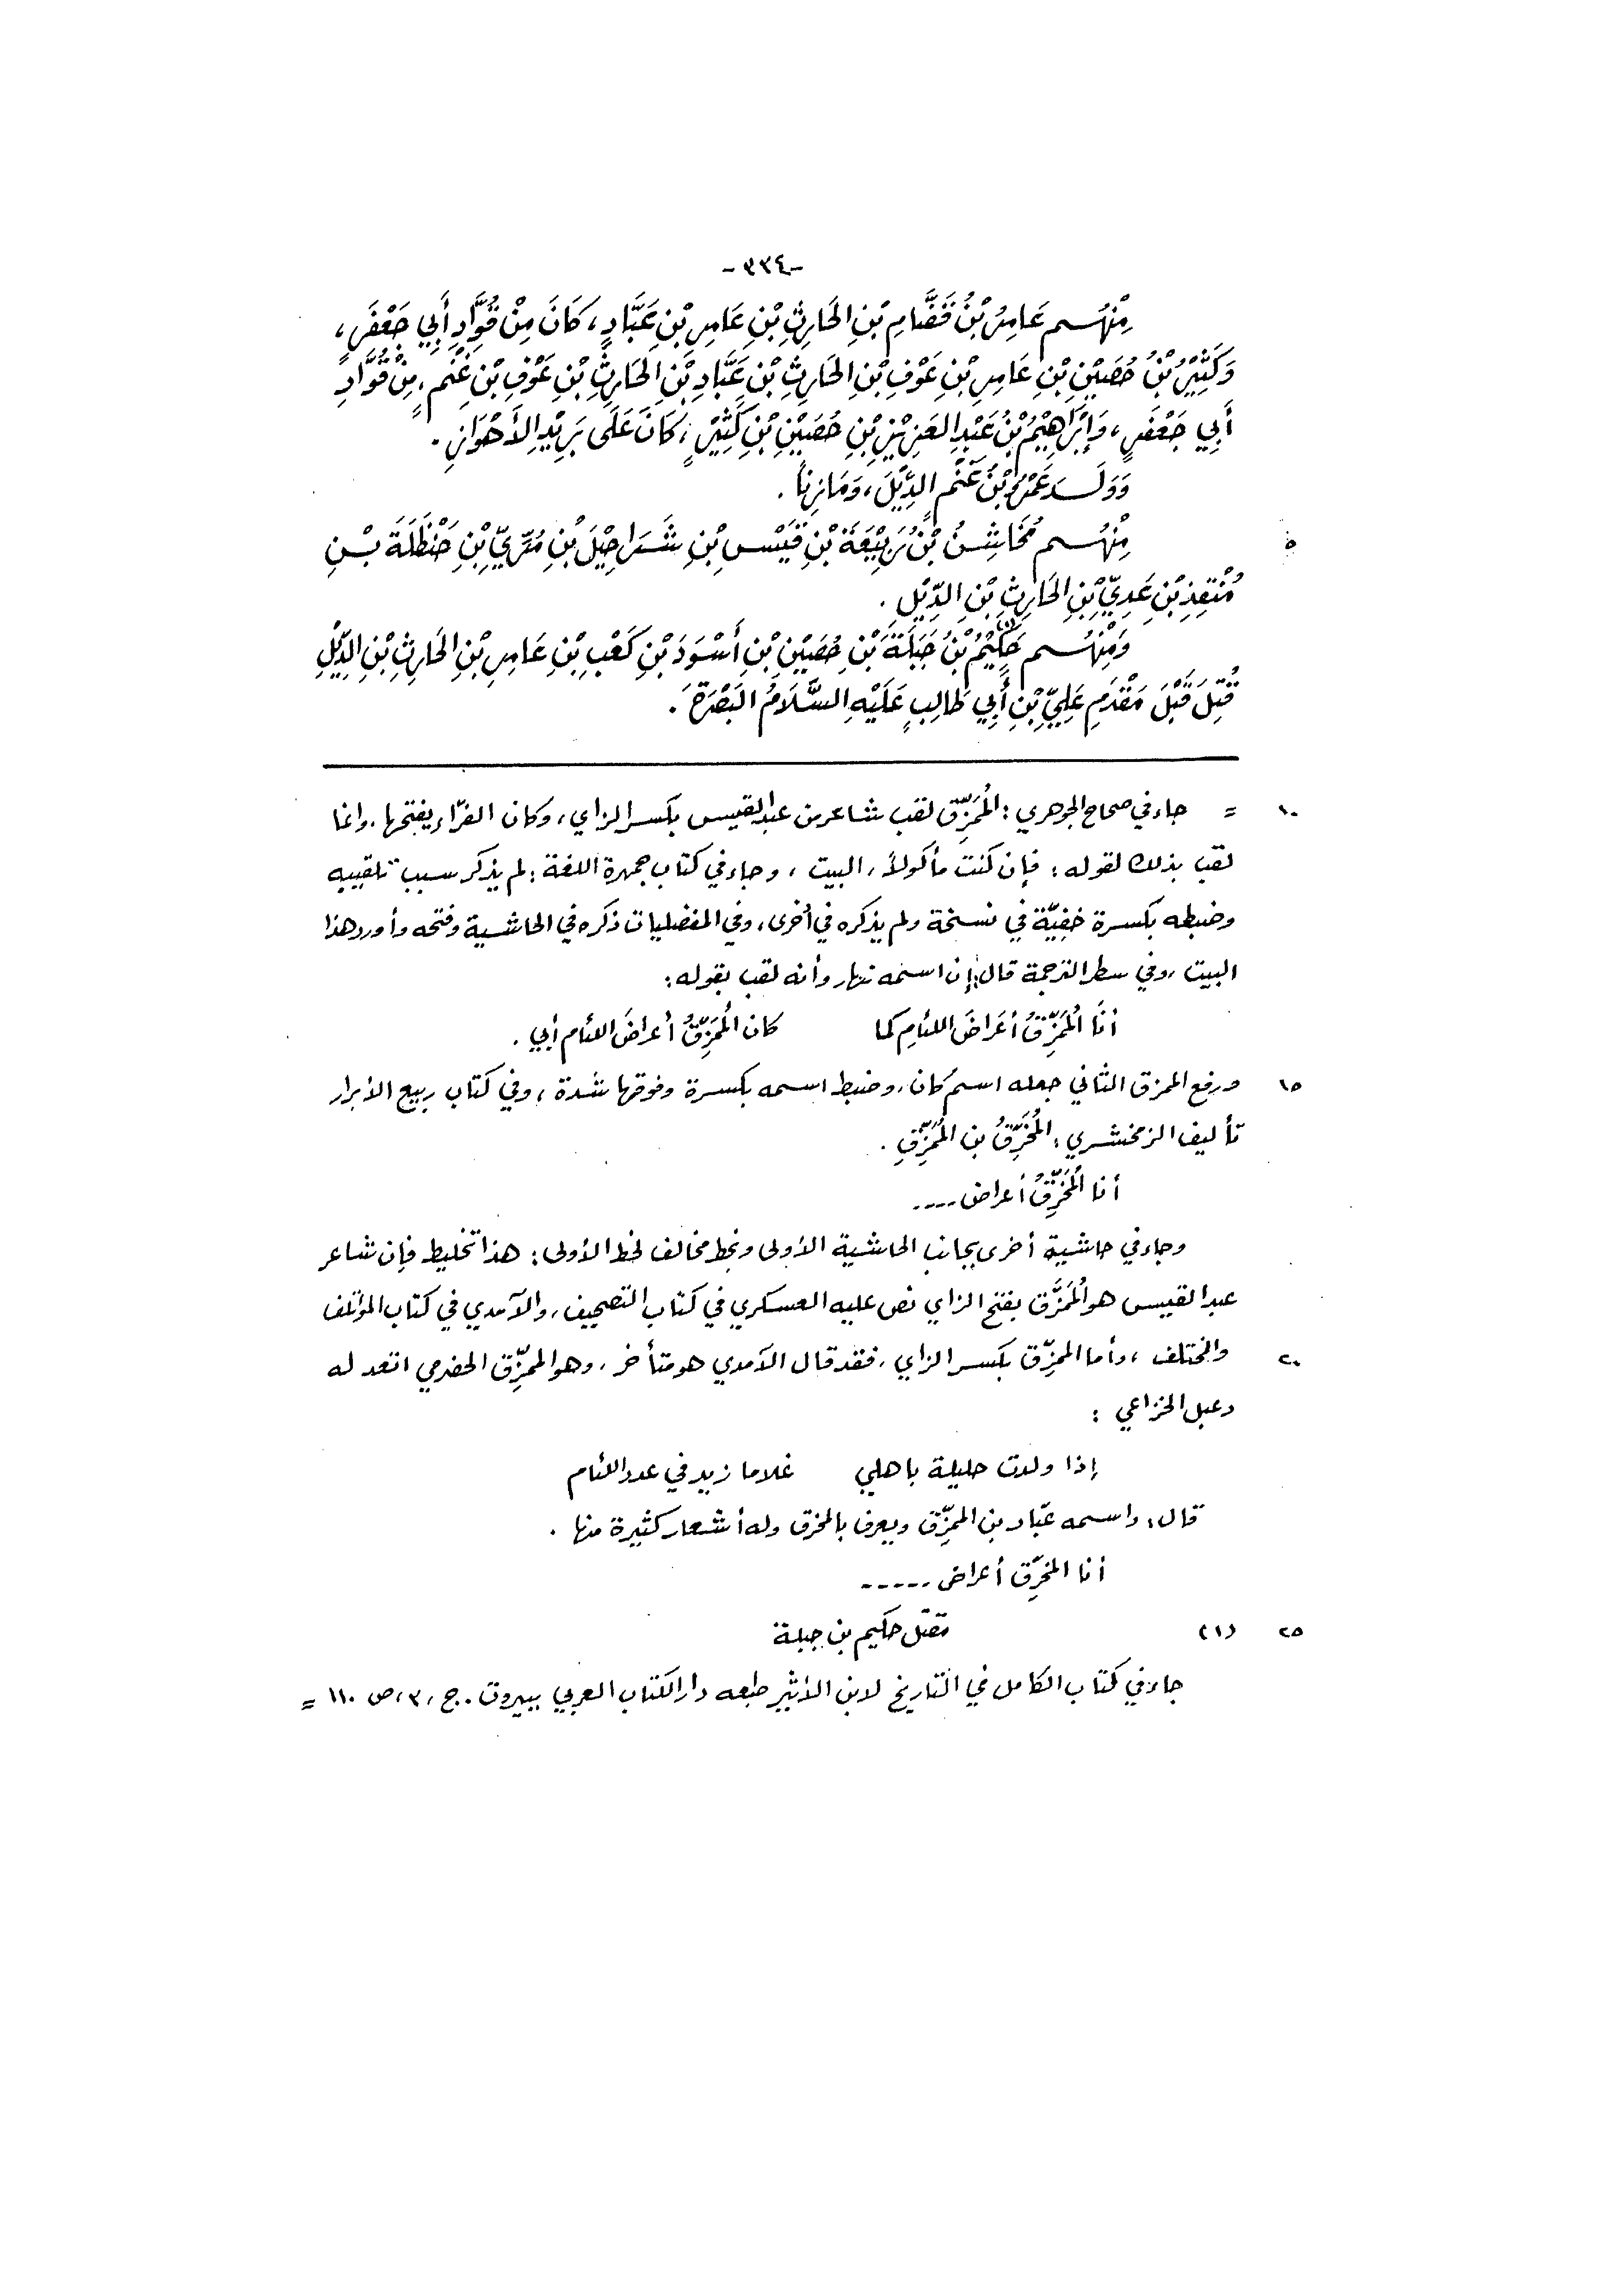 -٣٣٤-
مِنْهُم عَامِرُ بْنُ قَضَّامِ بْنِ الحَارِثِ بْنِ عَامِرِ بْنِ عَبَّادٍ، كَانَ مِنْ قُوَّادِ أَبِي جَعْفَرٍ،
وَكَثِيْرُ بْنُ حُصَيْنِ بْنِ عَامِرِ بْنِ عَوْفِ بْنِ الحَارِثِ بْنِ عَبَّادِ بْنِ الحَارِثِ بْنِ عَوْفِ بْنِ غَنْمٍ، مِنْ قُوَّادِ
أَبِي جَعْفَرٍ، وَإِبْرَاهِيْمُ بْنُ عَبْدِ العَزِيْزِ بْنِ حُصَيْنِ بْنِ كَثِيْرٍ، كَانَ عَلَى بَرِيْدِ الأَهْوَازِ.
وَوَلَدَ عَمْرُو بْنُ غَنْمٍ الدِّيْلَ، وَمَازِنًا.
٥ مِنْهُم مُخَاشِنُ بْنُ رَبِيْعَةَ بْنِ قَيْسِ بْنِ شَرَاحِيْلَ بْنِ مُرِّيِّ بْنِ حَنْظَلَةَ بْنِ
مُنْقِذِ بْنِ عَدِيِّ بْنِ الحَارِثِ بْنِ الدِّيْلِ.
وَمِنْهُم حَكِيْمُ (١) بْنُ جَبَلَةَ بْنِ حُصَيْنِ بْنِ أَسْوَدَ بْنِ كَعْبِ بْنِ عَامِرِ بْنِ الحَارِثِ بْنِ الدِّيْلِ
قُتِلَ قَبْلَ مَقْدَمِ عَلِيِّ بْنِ أَبِي طَالِبٍ عَلَيْهِ السَّلَامُ البَصْرَةَ.
١٠ = جاء في صحاح الجوهري: المُمَزِّق لقب شاعر من عبد القيس بكسر الزاي، وكان الفرّاء يفتحها. وانما
لقب بذلك لقوله: فإن كنت مأكولاً، البيت، وجاء في كتاب جمهرة اللغة: لم يذكر سبب تلقيبه
وضبطه بكسرة خفيّة في نسخة ولم يذكره في أخرى، وفي المفضليات ذكره في الحاشية وفتحه وأورد هذا
البيت، وفي سطر الترجمة قال: إن اسمه نهار وأنه لقب بقوله:
أنَا المُمَزِّقُ أعَراضَ اللئامِ كما كان المُمَزِّقُ أعراضَ اللئام أبي.
١٥ ورفع الممزق الثاني جعله اسم كان، وضبط اسمه بكسرة وفوقها شدة، وفي كتاب ربيع الأبرار
تأليف الزمخشري: المُخَرِّقُ بن المُمَزِّقِ.
أنا المُخَرِّقُ أعراض ----
وجاء في حاشية أخرى بجانب الحاشية الأولى وبخط مخالف لخط الأولى: هذا تخليط فإن شاعر
عبد القيس هو المُمَزَّق بفتح الزاي نص عليه العسكري في كتاب التصحيف، والآمدي في كتاب المؤتلف
٢٠ والمختلف، وأما الممزِّق بكسر الزاي، فقد قال الآمدي هو متأخر، وهو الممزِّق الحضرمي انعد له
دعبل الخزاعي:
إذا ولدت حليلة باهلي غلاما زيد في عدد اللئام
قال: واسمه عبّاد بن الممزِّق ويعرف بالمخرق وله أشعار كثيرة منها.
أنا المخرِّق أعراض -----
٢٥ (١) مقتل حكيم بن جبلة
جاء في كتاب الكامل في التاريخ لابن الأثير طبعه دار الكتاب العربي ببيروت. ج، ٣، ص ١١٠ =